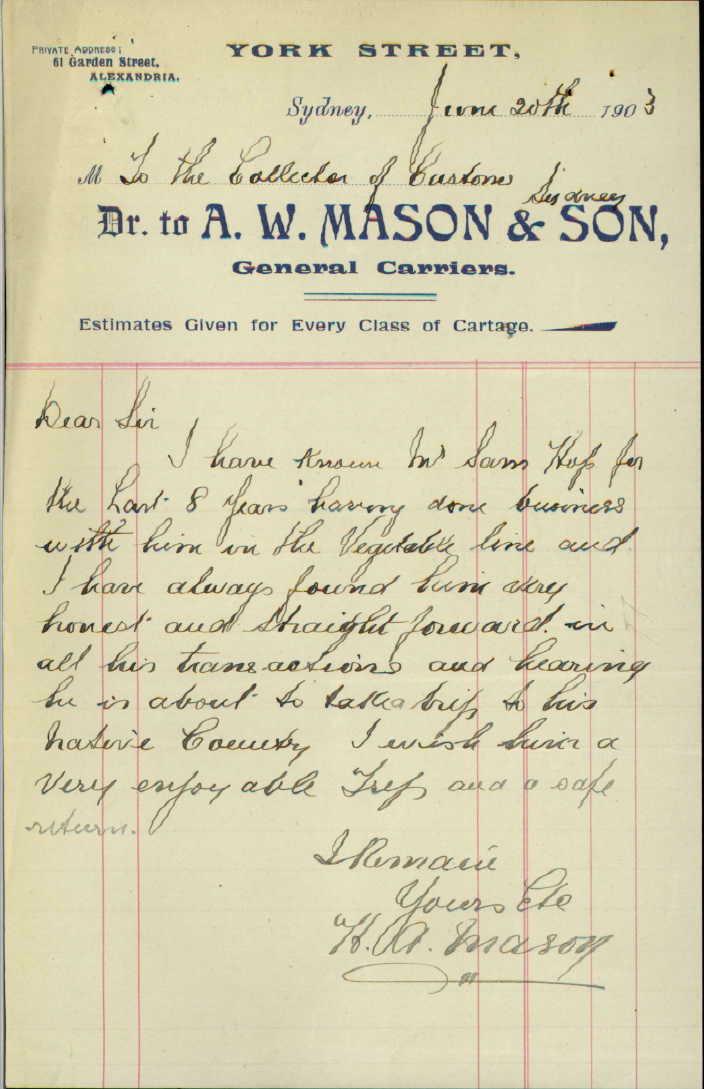 PRIVATE ADDRESS:
61 Garden Street,
ALEXANDRIA.
YORK STREET,
Sydney, June 20th 1903
M To the Collector of Customs
Sydney
Dr. to A. W. MASON & SON,
General Carriers.
Estimates Given for Every Class of Cartage.
Dear Sir
I have known Mr Sam Hop for
the Last 8 Years having done business
with him in the Vegetable line and
I have always found him very
honest and straight forward in
all his transactions and hearing
he is about to take a trip to his
Native Country I wish him a
very enjoyable Trip and a safe
return.
I Remain
Yours Etc
Mason